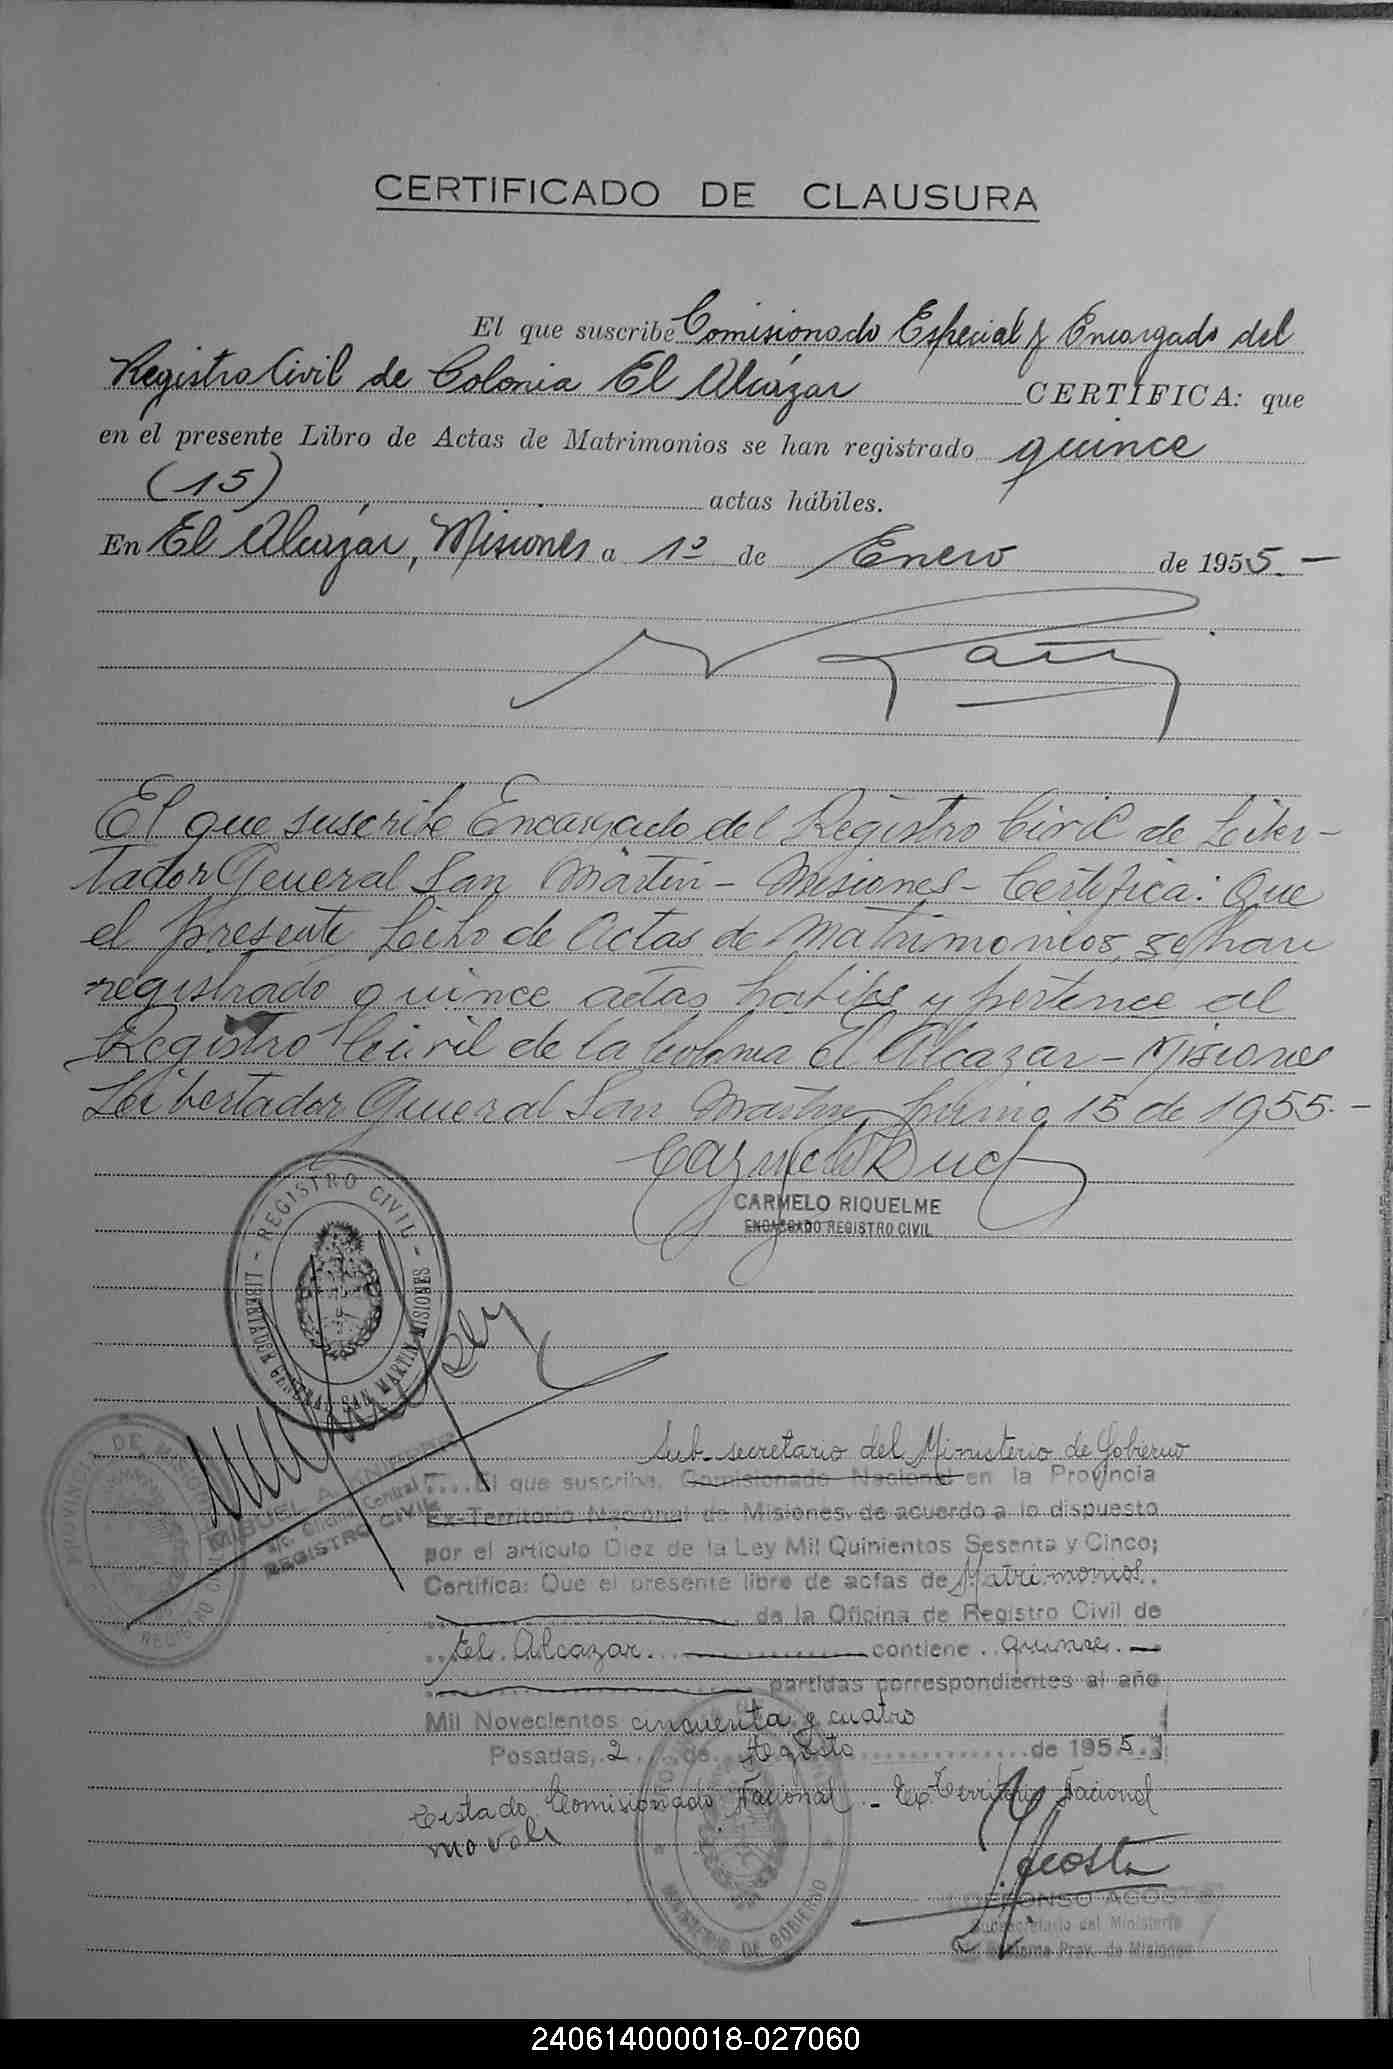 CERTIFICADO DE CLAUSURA
El que suscribe Comisionado Especial y Encargado del
Registro Civil de Colonia El Alcázar CERTIFICA: que
en el presente Libro de Actas de Matrimonios se han registrado quince
(15) actas hábiles.
En El Alcázar, Misiones a 1º de Enero de 1955.-
El que suscribe Encargado del Registro Civil de Liber-
tador General San Martin - Misiones - Certifica: Que
el presente Libro de Actas de Matrimonios, se han
registrado quince actas habiles y pertence al
Registro Civil de la Colonia El Alcazar - Misiones
Libertador General San Martin, 15 de 1955.-
CARMELO RIQUELME
ENCARGADO REGISTRO CIVIL
- REGISTRO CIVIL -
LIBERTADOR GENERAL SAN MARTIN MISIONES
PROVINCIA DE MISIONES
REGISTRO
MIGUEL A.
Oficina Central
REGISTRO CIVIL
Sub-secretario del Ministerio de Gobierno
El que suscribe, Comisionado Nacional en la Provincia
Ex-Territorio Nacional de Misiones, de acuerdo a lo dispuesto
por el artículo Diez de la Ley Mil Quinientos Sesenta y Cinco;
Certifica: Que el presente libro de actas de Matrimonios.
de la Oficina de Registro Civil de
El Alcazar contiene quince
partidas correspondientes al año
Mil Novecientos cincuenta y cuatro
Posadas, 2 de Agosto de 1955.
Testado Comisionado Nacional - Ex Territorio Nacional
no vale
MINISTERIO DE GOBIERNO
Acosta
ILDEFONSO ACOSTA
Subsecretario del Ministerio
de Gobierno Prov. de Misiones
240614000018-027060